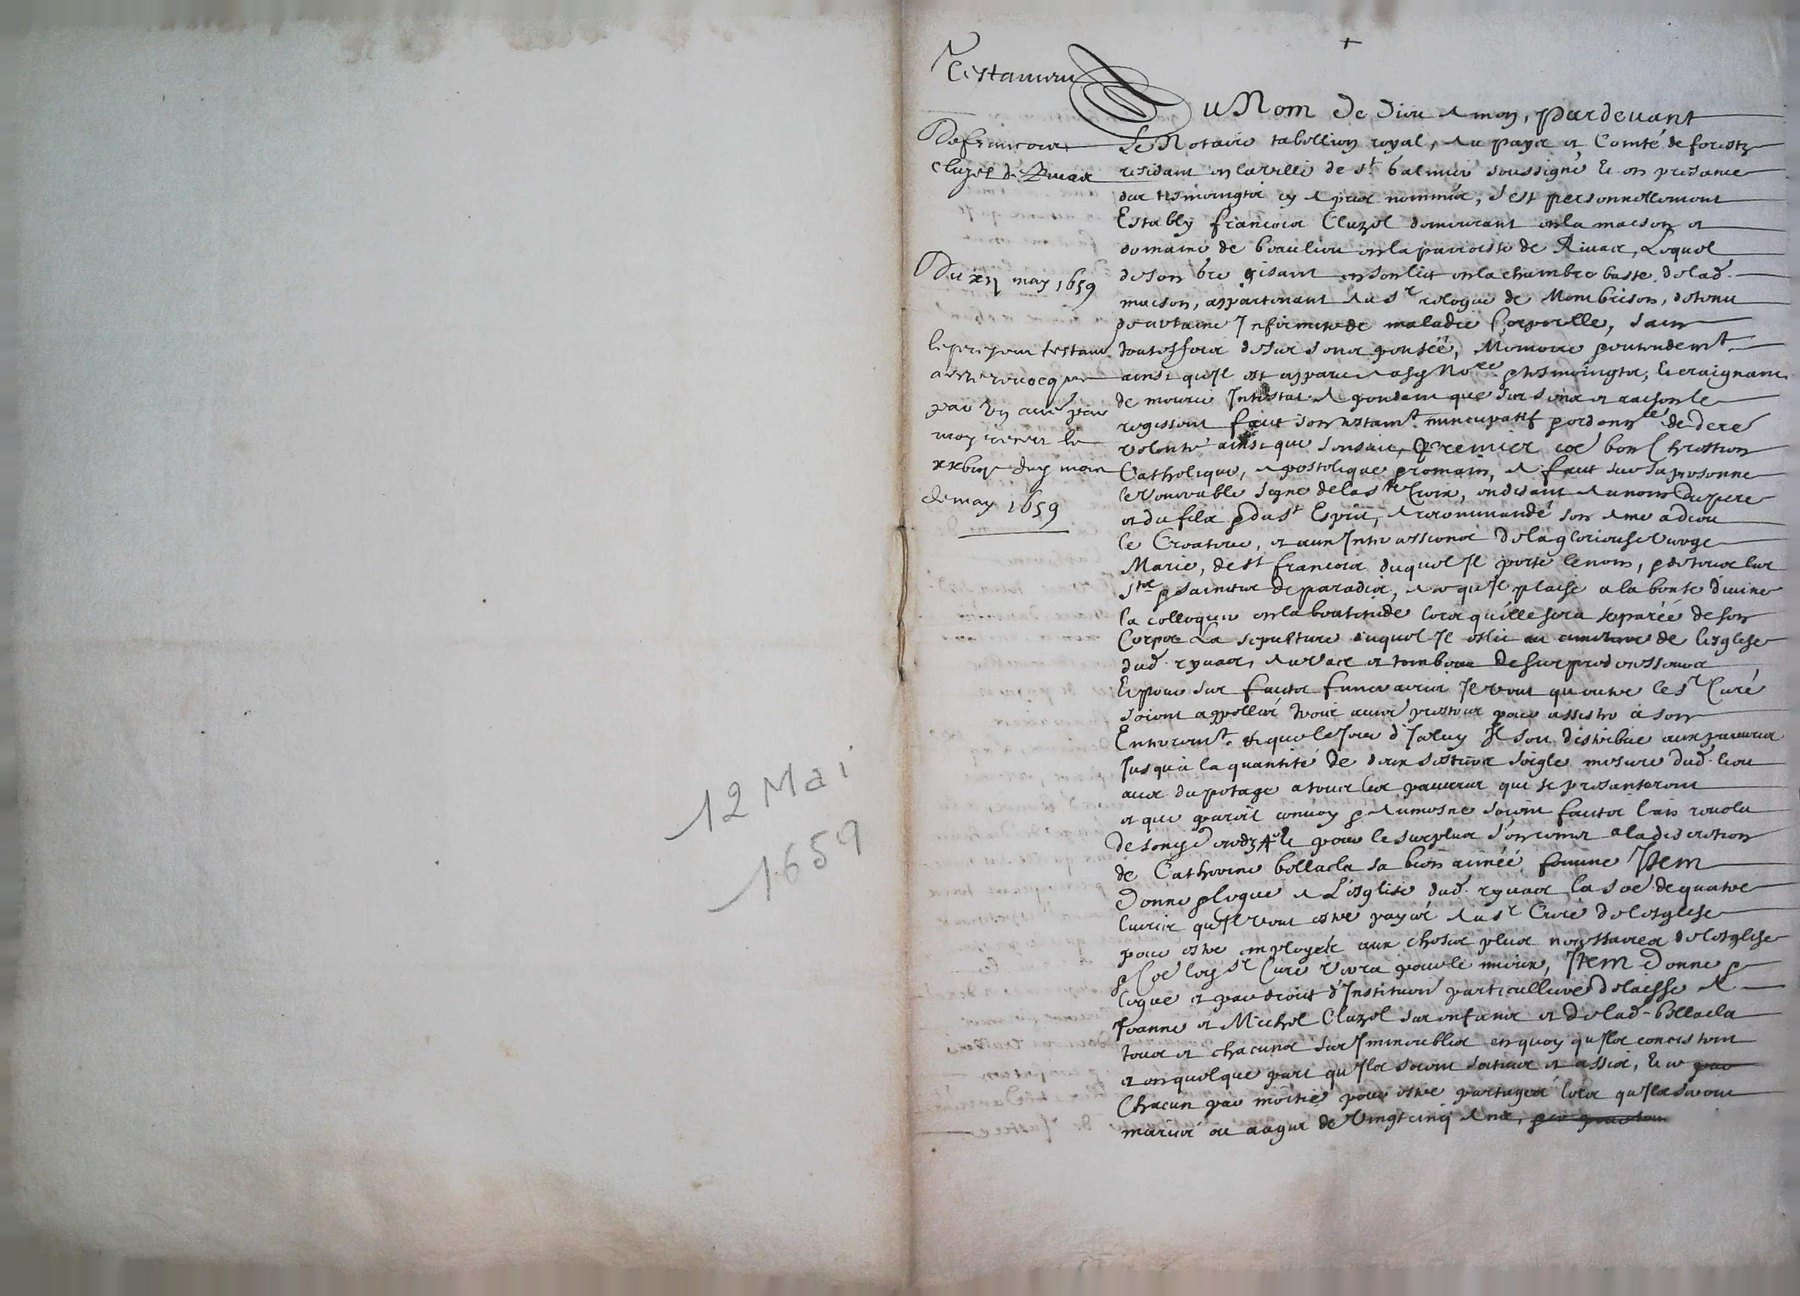 12 Mai
1659
Testament
De francois
Cluzel de Rivas
Du xij may 1659
le present testam
a esté revocqué
par un autre par
moy receu le
dud mois
de may 1659
Au Nom de Dieu Amen, Pardevant
Le Notaire tabellion royal, au payx et Comté de forestz
residant en la ville de st balmier soussigné Et en presance
des tesmoingtz cy apres nommés, s'est personnellement
Estably francois Cluzel demeurant en la maison et
domaine de beaulieu en la parroisse de Rivas, Lequel
de son gré gisant en son lict en la chambre basse de lad.
maison, appartenant au sr de Monbrison, detenu
de certaine Infirmité de maladie Corporelle, sain
toutesfois de ses sens pensée, Memoire et entendemt
ainsi qu'il est apparu a esd Nore & tesmoingtz, Et craignant
de mourir Intestat Et pendant que ses sens et raison le
regissent faict son testamt nuncupatif & ordonce de dere
volonté ainsi que s'ensuit, Premier coe bon Chrestien
Catholique, apostolique & romain, A faict sur sa personne
le venerable signe de la ste Croix, en disant Au nom du pere
et du filz & du st Esprit, A recommandé son ame a dieu
le Createur, et aux Intercessions de la glorieuse vierge
Marie, de st francois duquel Il porte le nom, & de tous les
stz & sainctes de paradis, A ce qu'il plaise a la bonté divine
la colloquer en la beatitude lors qu'elle sera separée de son
Corps La sepulture duquel Il eslit au cimetiere de l'esglise
dud. ryvas, au vas et tombeau de ses predecesseurs
Et pour ses fraictz funeraires Il veut qu'outre le sr Curé
soient appellés trois autres prestres pour assister a son
Enterremt. Et que le Jour d'Iceluy Il soit distribue aux pauvres
Jusqu'a la quantité de deux sestiers seigle mesure dud. lieu
avec du potage a tous les pauvres qui se presanteront
et que pareil convoy & aumosne soient faictz l'an revolu
de son Et pour le surplus s'en remet a la discretion
de Catherine bellacla sa bien aimée femme Item
Donne & legue A L'esglise dud. ryvas la soe de quatre
livres qu'Il veut estre payés Au sr Curé de l'esglise
pour estre employés aux choses plus necessaires de l'esglise
& coe led sr Curé verra pour le mieux, Item Donne &
legue et par droict d'Institution particulliere delaisse A
Jeanne et Michel Cluzel ses enfans et de lad. bellacla
tous et chacuns ses Immeubles en quoy qu'ilz concistent
et en quelque part qu'ilz soient scitues et assis, Et ce
Chacun par moitié pour estre partagés lors qu'ilz seront
mariés ou aagés de vingt cinq ans,